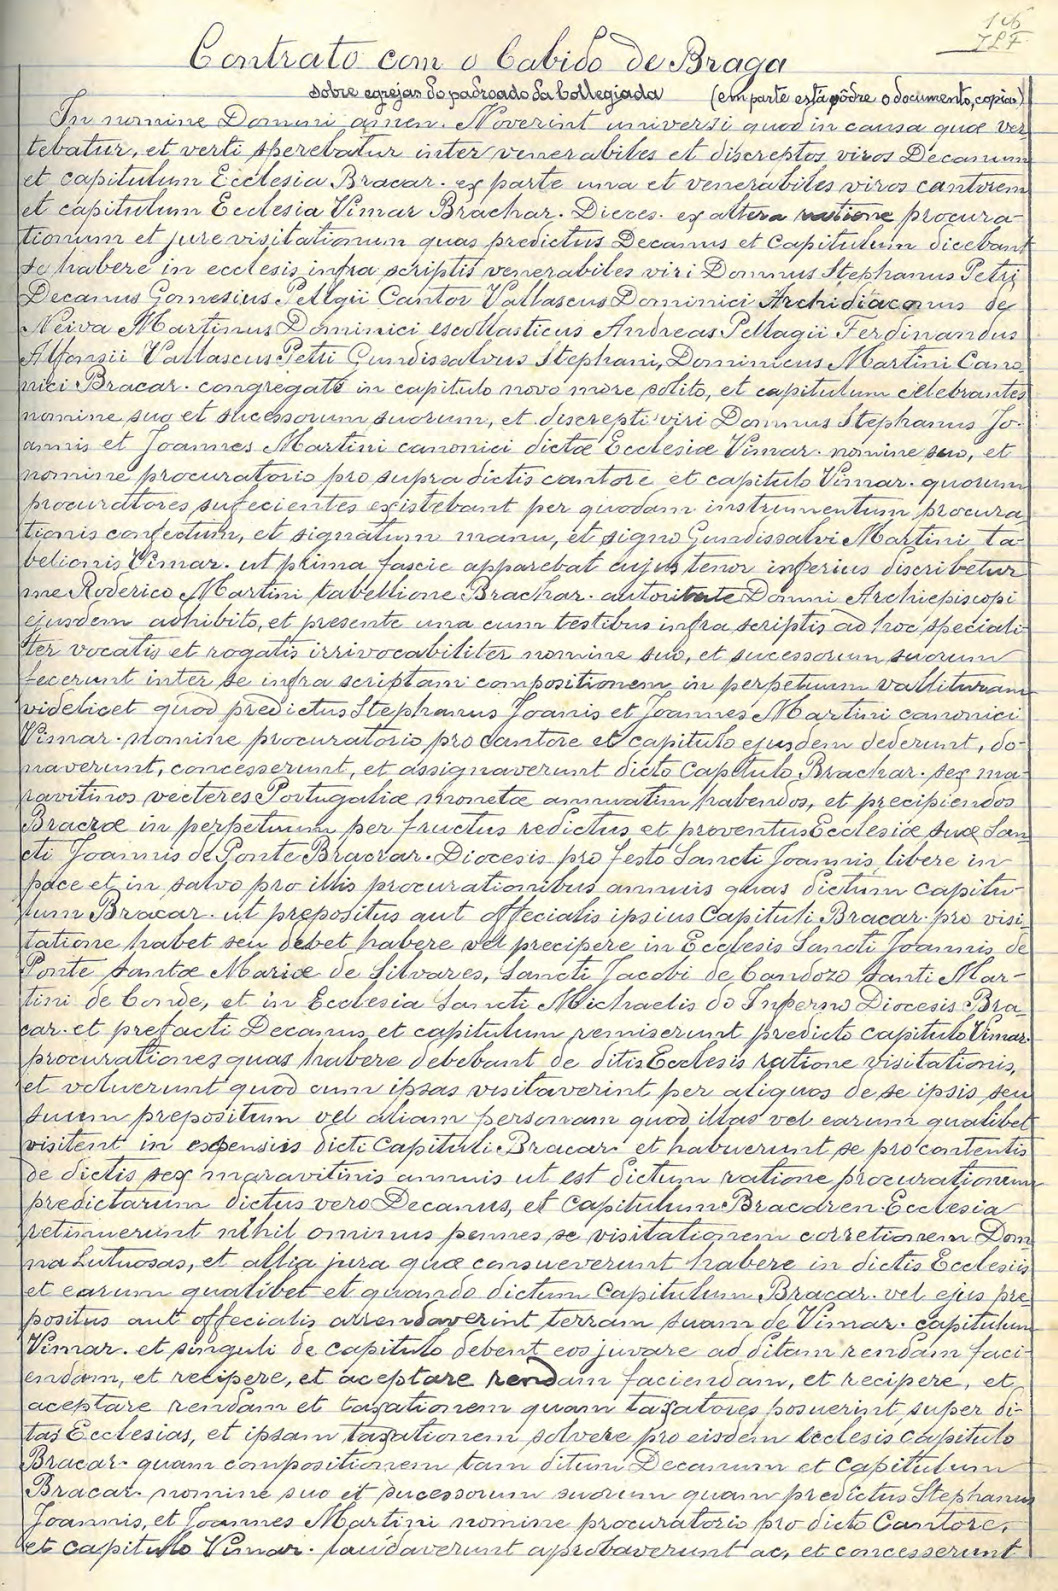 Contrato com o Cabido de Braga
sobre egrejas do padroado da Collegiada (em parte está pôdre o documento, copias)
In nomine Domini amen. Noverint universi quod in causa quæ ver-
tebatur, et verti sperebatur inter venerabiles et discreptos viros Decanum
et capitulum Ecclesia Bracar. ex parte una et venerabiles viros cantorem
et capitulum Ecclesia Vimar Brachar. Dieces. ex altera ratione procura-
tionum et jure visitationum quas predictus Decanus et Capitulum dicebant
se habere in ecclesis infra scriptis venerabiles viri Domnus Stephanus Petri
Decanus Gomesius Pellgii Cantor Vallascus Dominici Archidiaconus de
Neiva Martinus Dominici escollasticus Andreas Pellagii Ferdinandus
Alfonsii Vallascus Petri Gundissalvus Stephani, Dominicus Martini Cano-
nici Bracar. congregati in capitulo novo more solito, et capitulum celebrantes
nomine suo et sucessorum suorum, et discrepti viri Domnus Stephanus Jo-
annis et Joannes Martini canonici dictæ Ecclesiæ Vimar. nomine suo, et
nomine procuratorio pro supra dictis cantore et capitulo Vimar. quorum
procuratores sufecientes existebant per quodam instrumentum procura-
tionis confectum, et signatum manu, et signo Gundissalvi Martini ta-
belionis Vimar. ut prima fascie apparebat cujus tenor inferius discribetur
me Roderico Martini tabellione Brachar. autoritate Domni Archiepiscopi
ejusdem adhibito, et presente una cum testibus infra scriptis ad hoc speciali-
ter vocatis et rogatis irrivocabiliter nomine suo, et sucessorum suorum
fecerunt inter se infra scriptam compositionem in perpetuum vallituram
videlicet quod predictus Stephanus Joanis et Joannes Martini canonici
Vimar. nomine procuratorio pro cantore et capitulo ejusdem dederunt, do-
naverunt, concesserunt, et assignaverunt dicto Capitulo Brachar. sex ma-
ravitinos vecteres Portugaliæ monetæ annuatim habendos, et precipiendos
Bracræ in perpetuum per fructus redictus et proventus Ecclesiæ suæ San-
cti Joannis de Ponte Bracrar. Diocesis pro festo Sancti Joannis libere in
pace et in salvo pro illis procurationibus annuis quas dictum capitu-
lum Bracar. ut prepositus aut offecialis ipsius Capituli Bracar. pro visi-
tatione habet seu debet habere vel precipere in Ecclesis Sancti Joannis de
Ponte Santæ Mariæ de Silvares, Sancti Jacobi de Candozo Santi Mar-
tini de Conde, et in Ecclesia Sancti Michaelis do Inferno Diocesis Bra-
car. et prefacti Decanus et capitulum remiserunt predicto capitulo Vimar.
procurationes quas habere debebant de ditis Ecclesis ratione visitationis,
et voluerunt quod cum ipsas visitaverint per aliquos de se ipsis seu
suum prepositum vel aliam personam quod illas vel earum qualibet
visitent in expensiis dicti Capituli Bracar. et habuerunt se pro contentis
de dictis sex maravitinis annuis ut est dictum ratione procurationum
predictarum dictus vero Decanus, et Capitulum Bracaren. Ecclesia
retinuerunt nihil ominus pennes, se visitationem corretionem Dom-
na Lutuosas, et allia jura quæ consueverunt habere in dictis Ecclesiis
et earum qualibet et quando dictum Capitulum Bracar. vel ejus pre-
positus aut offecialis arrendaverint terram suam de Vimar. capitulum
Vimar. et singuli de capitulo debent eos juvare ad ditam rendam faci-
endam, et recipere, et aceptare rendam faciendam, et recipere, et
aceptare rendam et taxationem quam taxatores posuerint super di-
tas Ecclesias, et ipsam taxationem solvere pro eisdem ecclesis capitulo
Bracar. quam compositionem tam ditum Decanum et Capitulum
Bracar. nomine suo et sucessorum suorum quam predictus Stephanus
Joannis, et Joannes Martini nomine procuratorio pro dicto Cantore,
et capitulo Vimar. laudaverunt aprobaverunt ac, et concesserunt